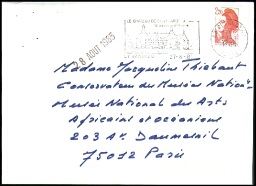 28 AOUT 1985
Madame Jacqueline Thiébaut
Conservateur des Musées Nation
Musée National des Arts
Africains et océaniens
203 Av. Daumesnil
75012 Paris